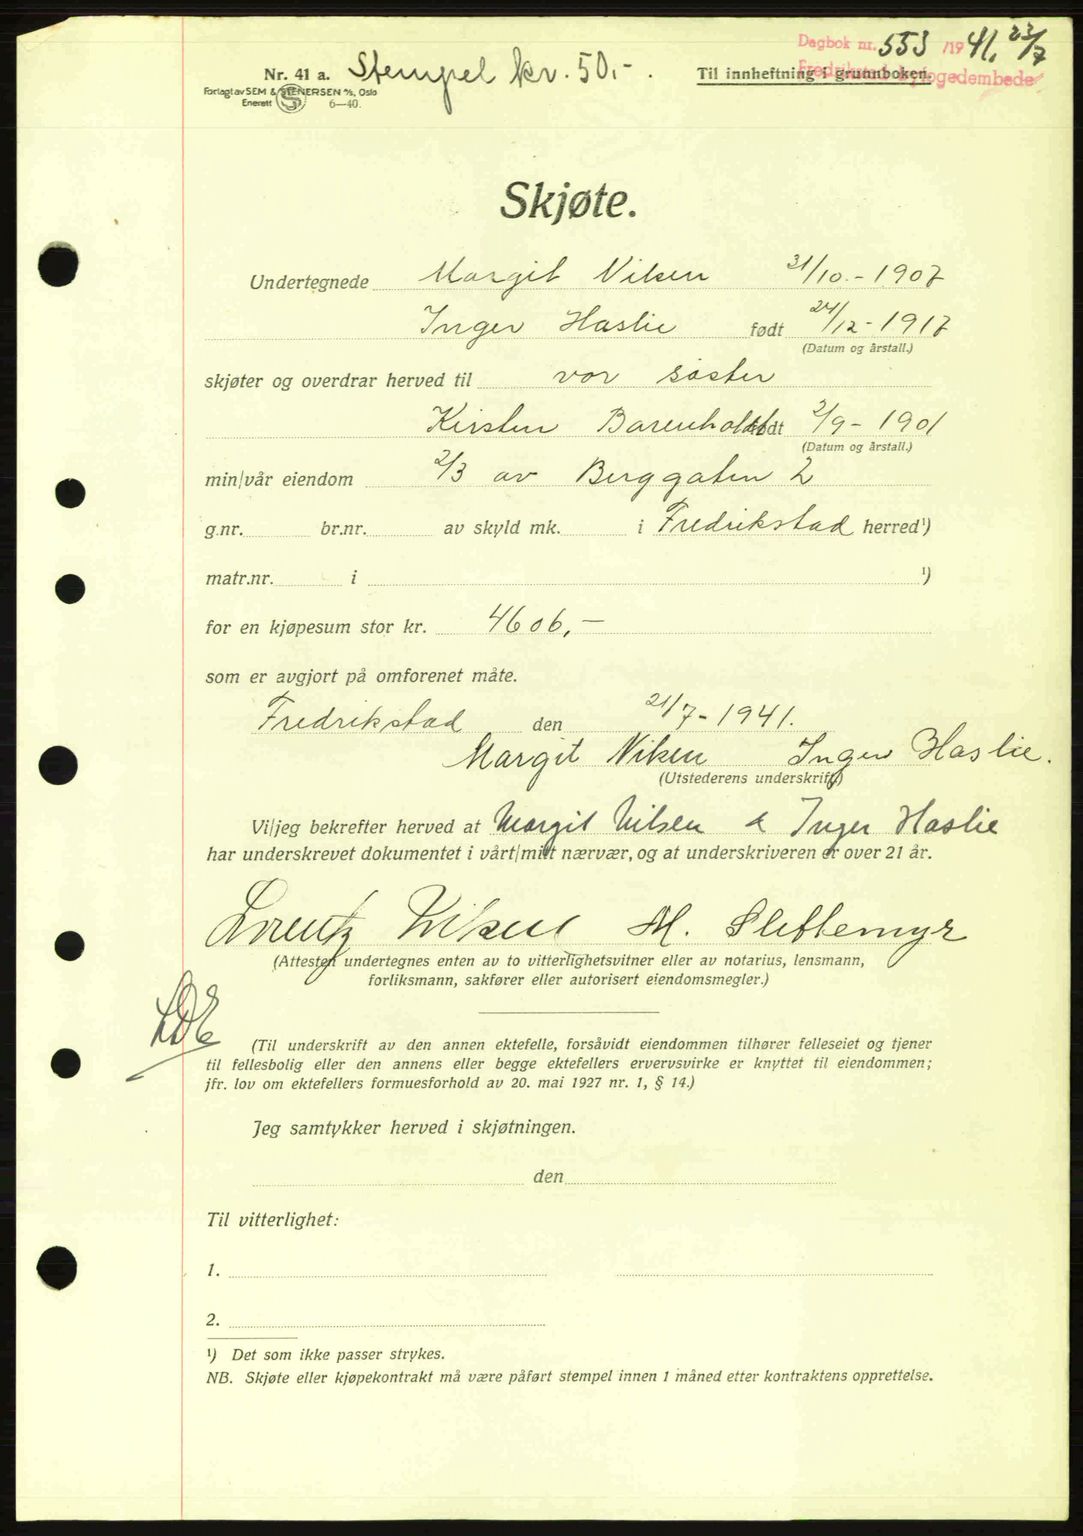 Dagbok nr. 553 /1941, 23/7
Fredrikstad byfogedembede
Nr. 41 a. Stempel kr. 50,-. Til innheftning i grunnboken.
Forlagt av SEM & STENERSEN A/S, Oslo
Enerett S 6—40.
Skjøte.
Undertegnede Margit Nilsen 31/10.-1907
Inger Haslie født 24/12-1917
(Datum og årstall.)
skjøter og overdrar herved til vor søster
Kirsten Barenholdt født 2/9-1901
(Datum og årstall.)
min/vår eiendom 2/3 av Berggaten 2
g.nr. br.nr. av skyld mk. i Fredrikstad herred¹)
matr.nr. i ¹)
for en kjøpesum stor kr. 4606,—
som er avgjort på omforenet måte.
Fredrikstad den 21/7-1941.
Margit Nilsen Inger Haslie.
(Utstederens underskrift)
Vi/jeg bekrefter herved at Margit Nilsen & Inger Haslie
har underskrevet dokumentet i vårt/mitt nærvær, og at underskriveren er over 21 år.
Lorentz Nilsen M. Slettemyr
(Attesten undertegnes enten av to vitterlighetsvitner eller av notarius, lensmann,
forliksmann, sakfører eller autorisert eiendomsmegler.)
(Til underskrift av den annen ektefelle, forsåvidt eiendommen tilhører felleseiet og tjener
til fellesbolig eller den annens eller begge ektefellers ervervsvirke er knyttet til eiendommen;
jfr. lov om ektefellers formuesforhold av 20. mai 1927 nr. 1, § 14.)
Jeg samtykker herved i skjøtningen.
den
Til vitterlighet:
1.
2.
¹) Det som ikke passer strykes.
NB. Skjøte eller kjøpekontrakt må være påført stempel innen 1 måned etter kontraktens opprettelse.